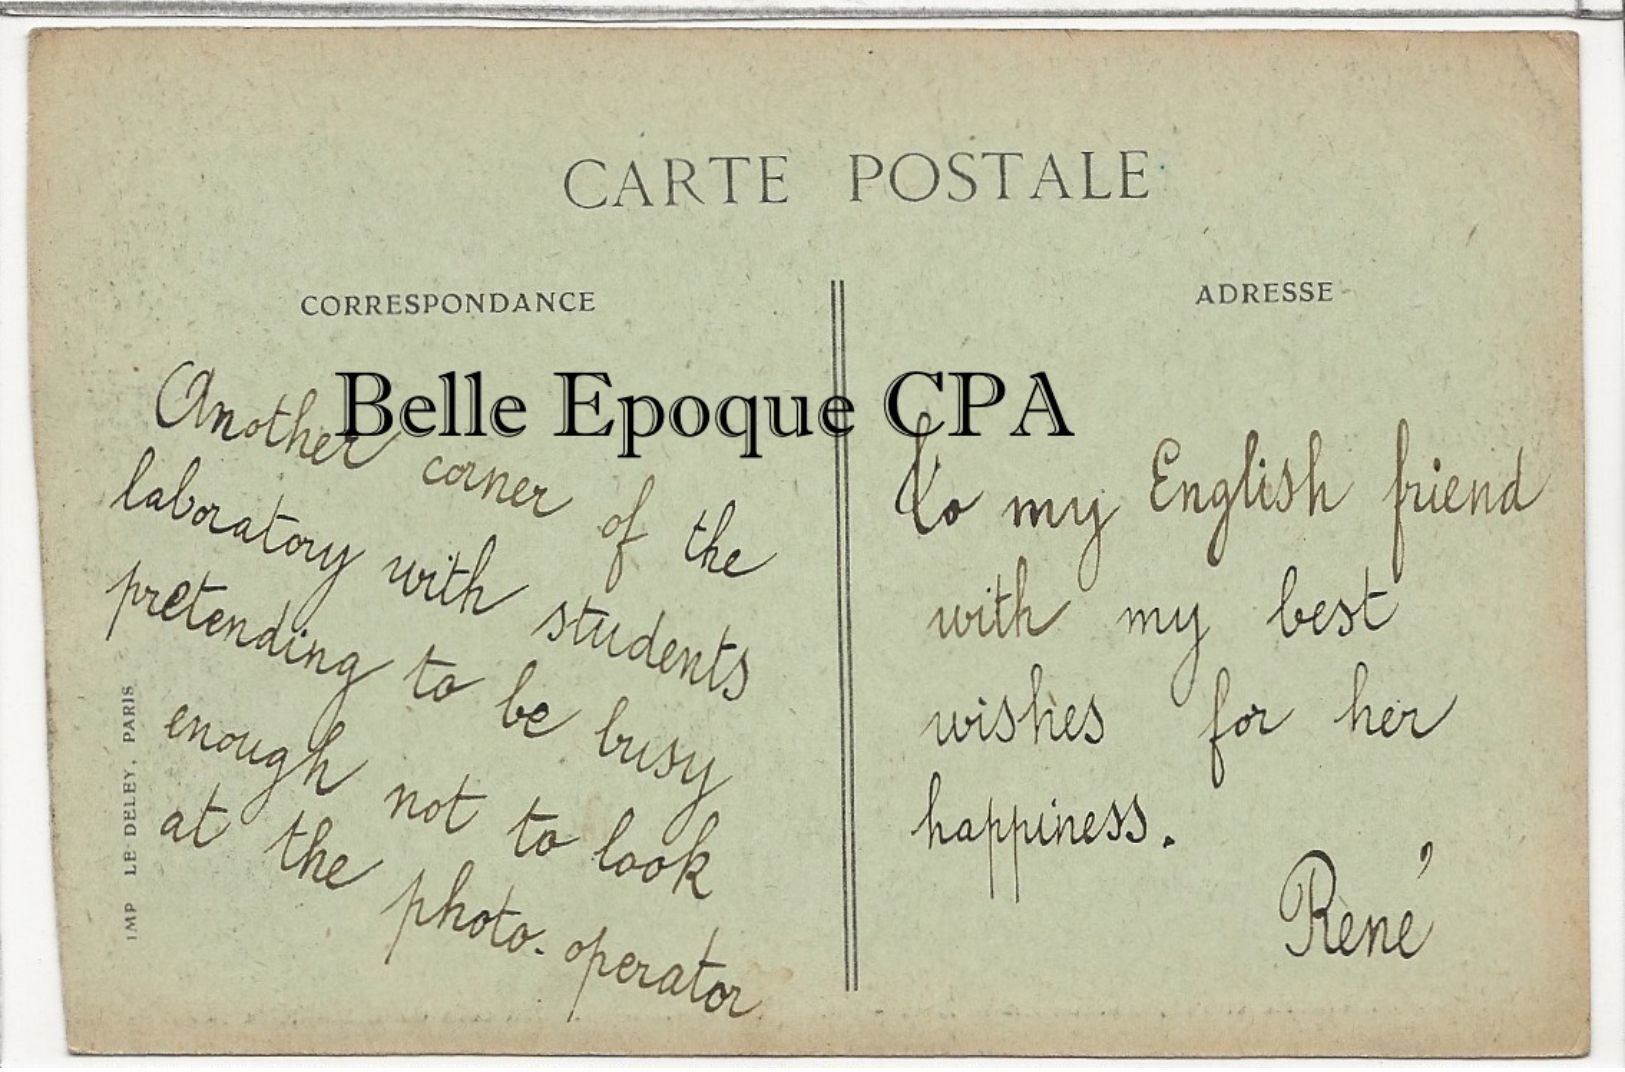 CARTE POSTALE
CORRESPONDANCE
ADRESSE
Belle Epoque CPA
Another corner of the
laboratory with students
pretending to be busy
enough not to look
at the photo-operator
IMP LE DELEY, PARIS
To my English friend
with my best
wishes for her
happiness.
René